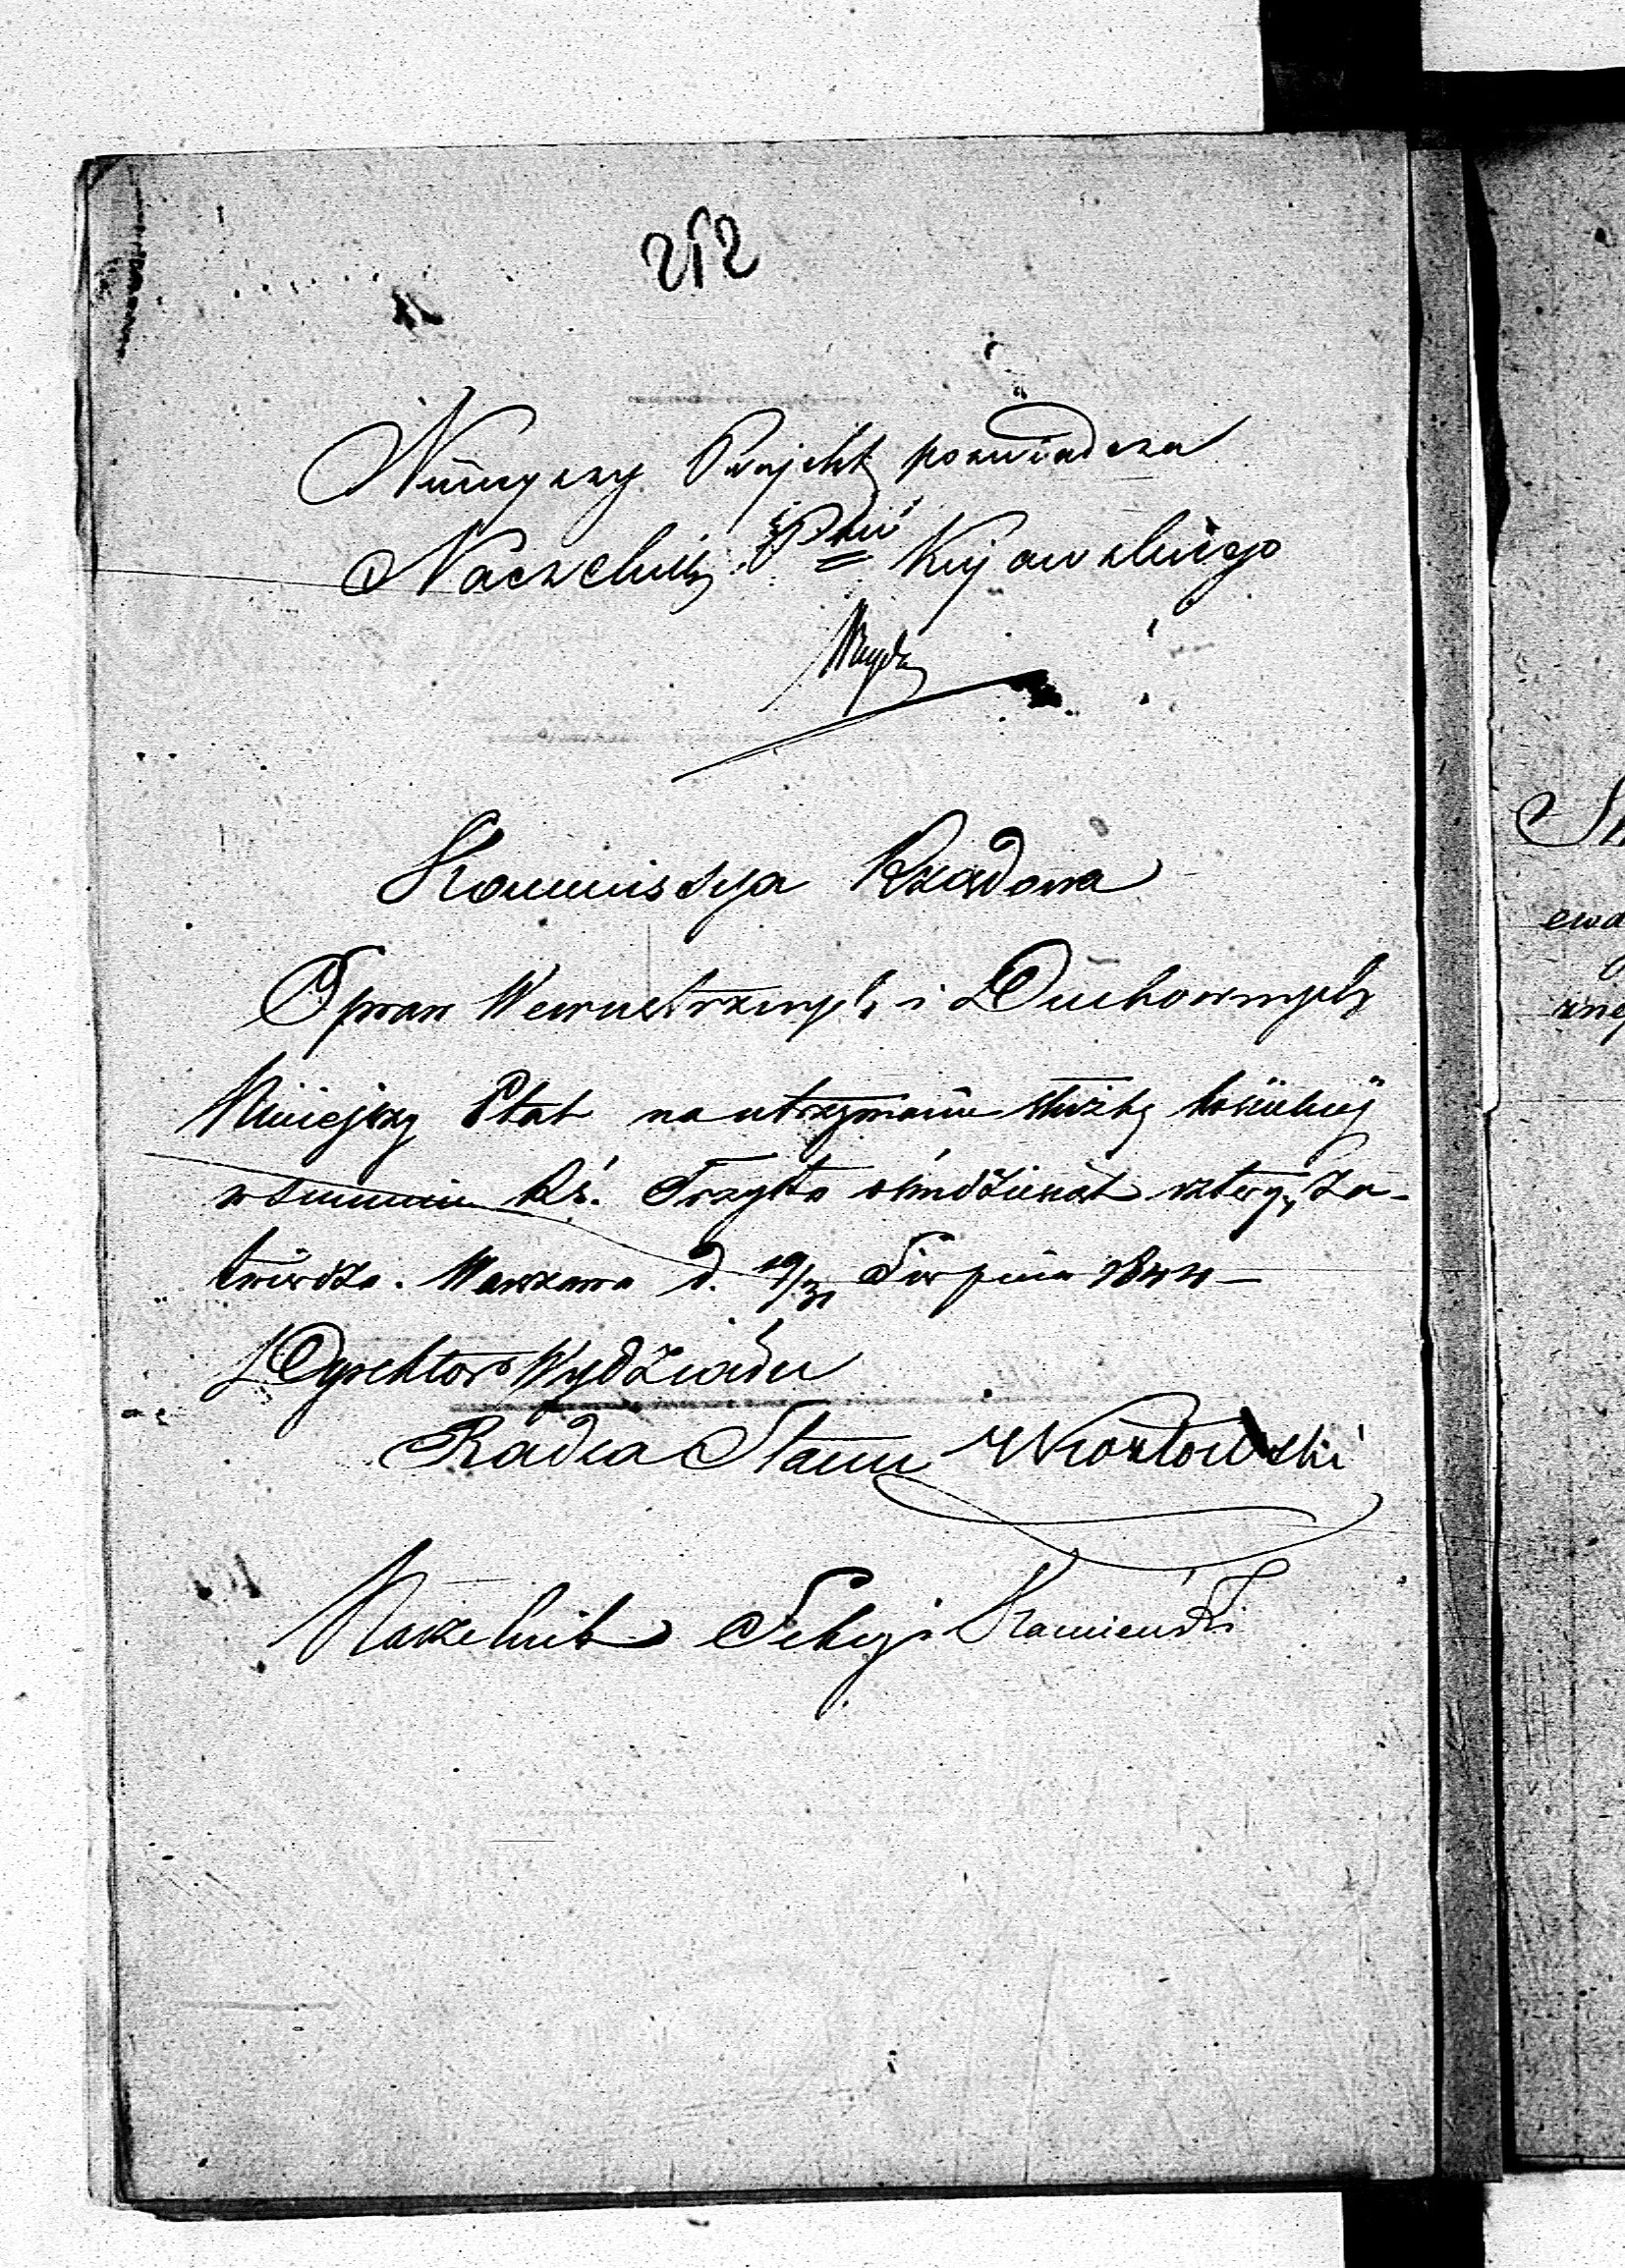 212
Niniejszy Projekt poświadcza
Naczelnik Pttu Kujawskiego
Kommissya Rządowa
Spraw Wewnętrznych i Duchownych
Niniejszy Etat na utrzymanie służby kościelnej
w summie Rs. Trzysta ośmdziesiąt cztery, za-
twierdza. Warszawa d. 19/31 Sierpnia 1844 —
Dyrektor Wydziału
Radca Stanu
Naczelnik Sekcyi Kamieński